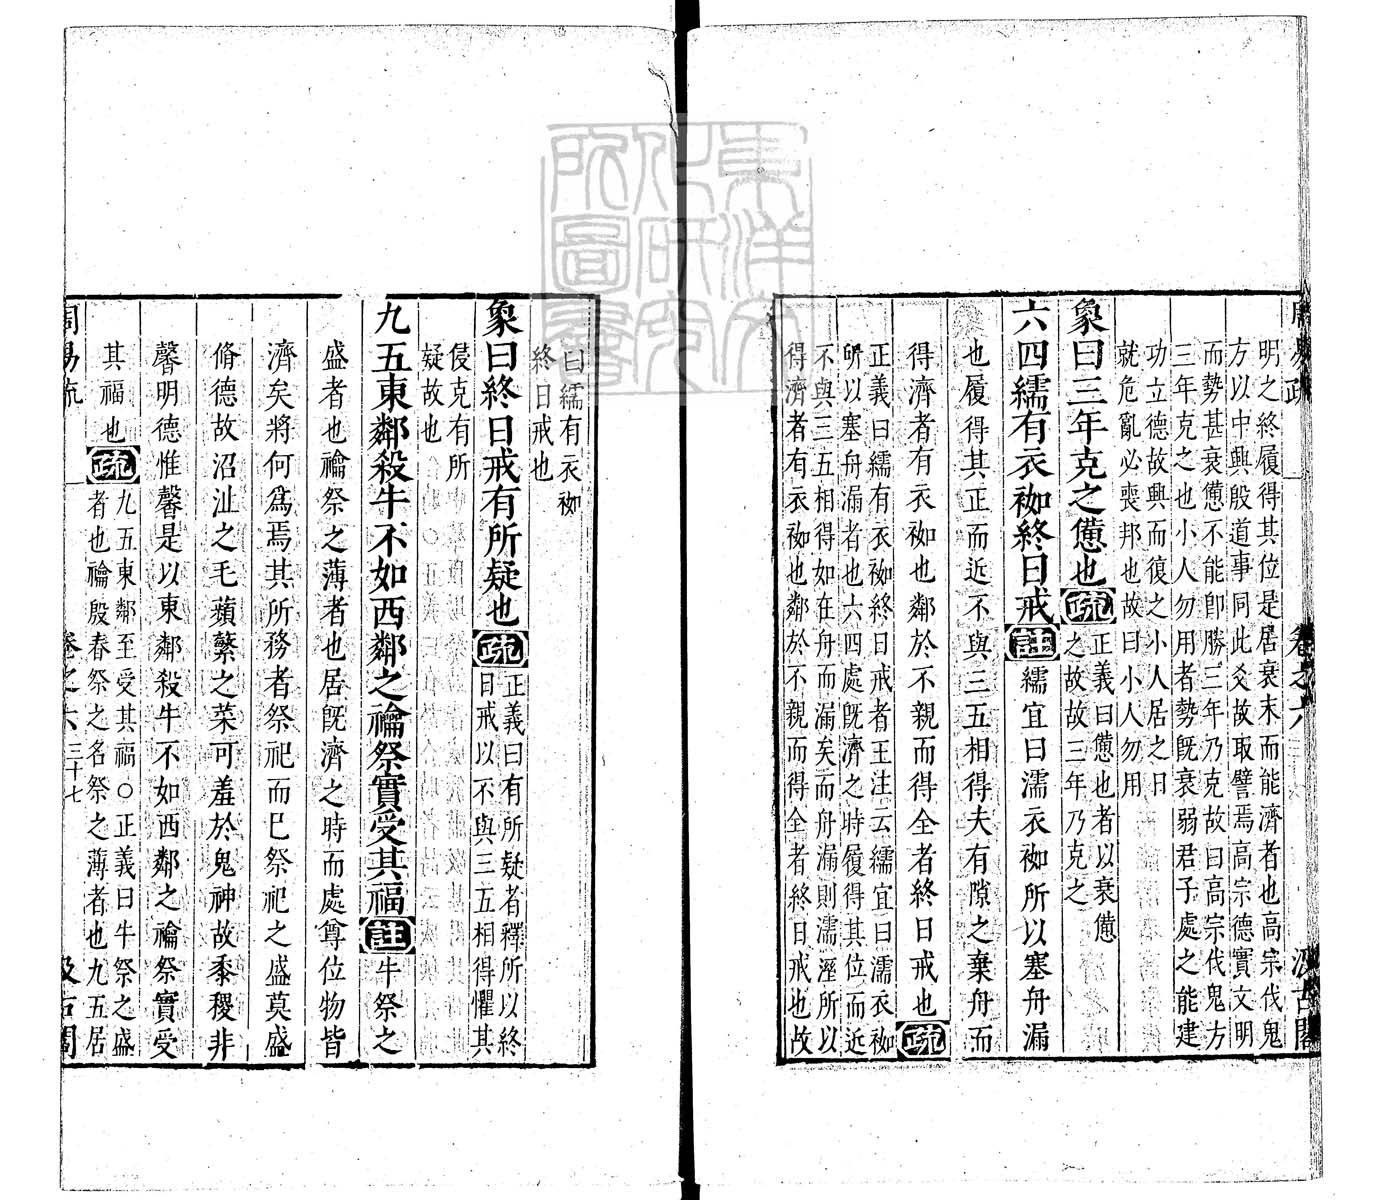 周易疏 卷之六 汲古閣
明之終履得其位是居衰末而能濟者也高宗伐鬼
方以中興殷道事同此爻故取譬焉高宗德實文明
而勢甚衰憊不能卽勝三年乃克故曰高宗伐鬼方
三年克之也小人勿用者勢旣衰弱君子處之能建
功立德故興而復之小人居之日
就危亂必喪邦也故曰小人勿用
象曰三年克之憊也疏正義曰憊也者以衰憊
之故故三年乃克之
六四繻有衣袽終日戒註繻宜曰濡衣袽所以塞舟漏
也履得其正而近不與三五相得夫有隙之棄舟而
得濟者有衣袽也鄰於不親而得全者終日戒也疏
正義曰繻有衣袽終日戒者王注云繻宜曰濡衣袽
所以塞舟漏者也六四處旣濟之時履得其位而近
不與三五相得如在舟而漏矣而舟漏則濡溼所以
得濟者有衣袽也鄰於不親而得全者終日戒也故
曰繻有衣袽
終日戒也
象曰終日戒有所疑也疏正義曰有所疑者釋所以終
日戒以不與三五相得懼其
侵克有所
疑故也
九五東鄰殺牛不如西鄰之禴祭實受其福註牛祭之
盛者也禴祭之薄者也居旣濟之時而處尊位物皆
濟矣將何爲焉其所務者祭祀而巳祭祀之盛莫盛
脩德故沼沚之毛蘋蘩之菜可羞於鬼神故黍稷非
馨明德惟馨是以東鄰殺牛不如西鄰之禴祭實受
其福也疏九五東鄰至受其福○正義曰牛祭之盛
者也禴殷春祭之名祭之薄者也九五居
周易疏 卷之六 三十七 汲古閣